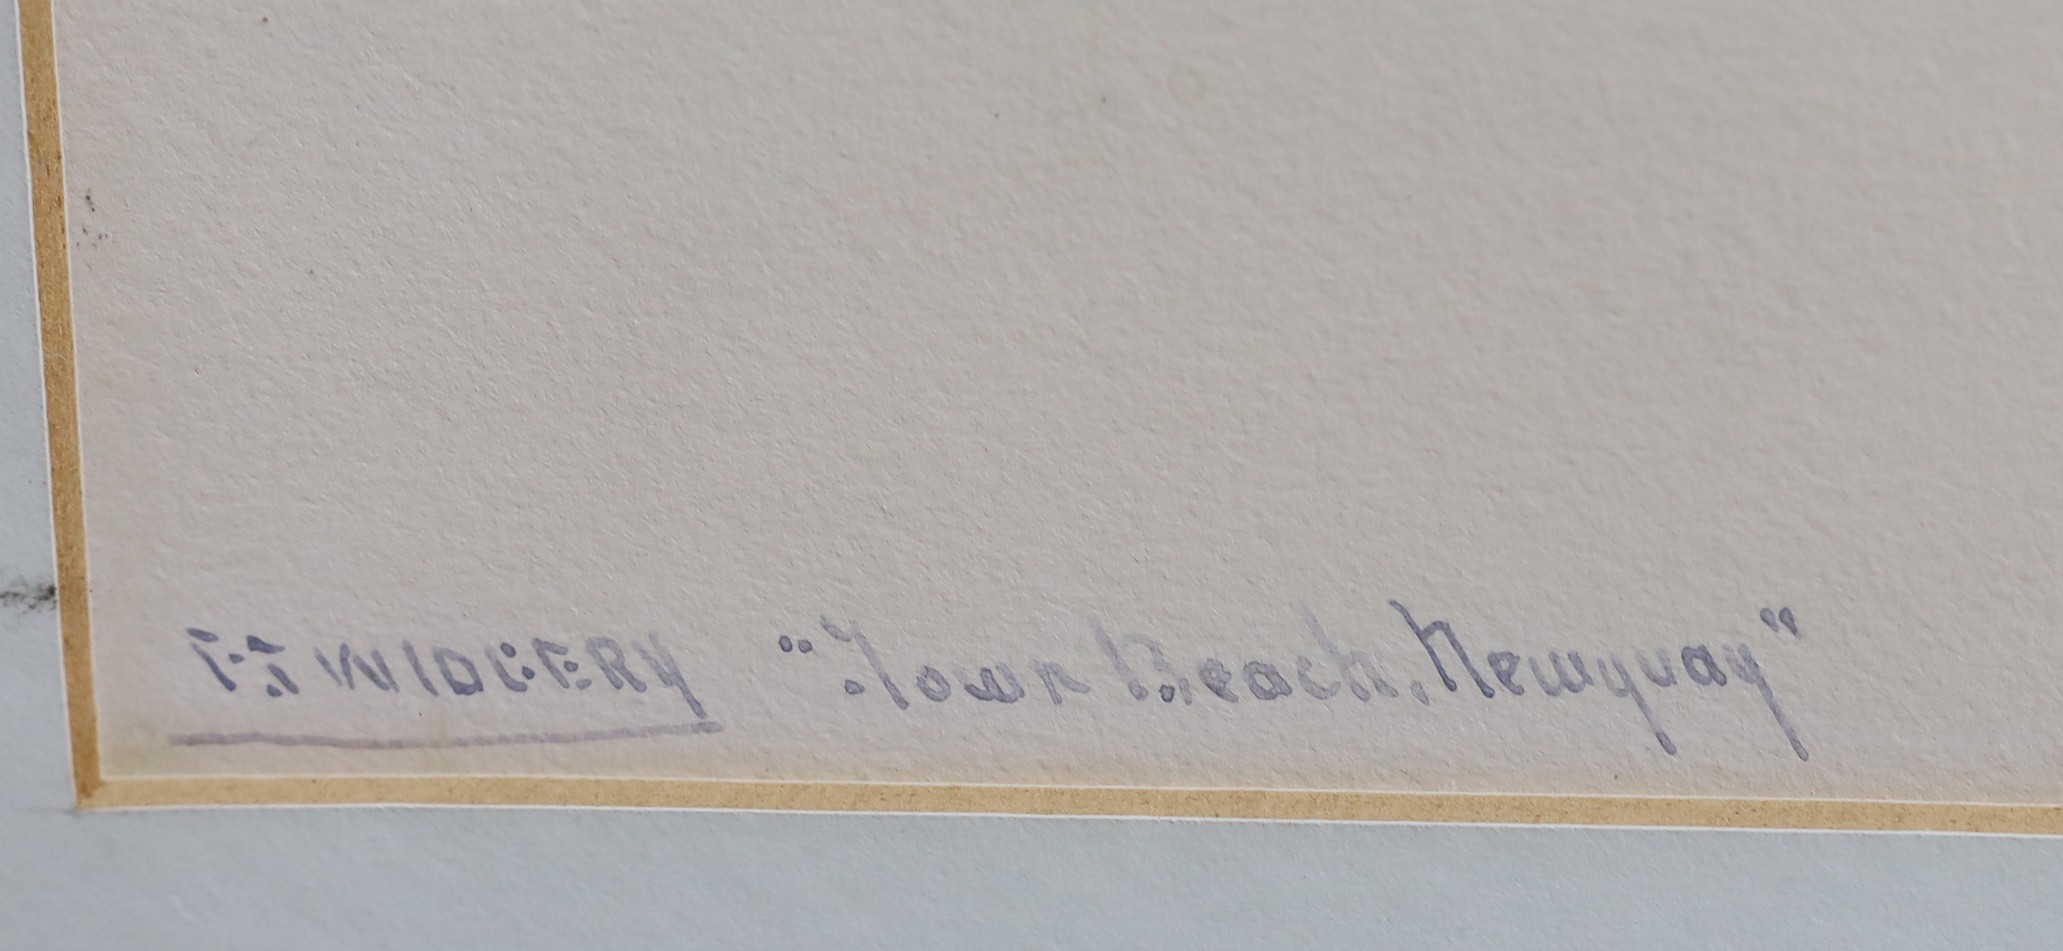 FJ WIDGERY "Town Beach, Newquay"